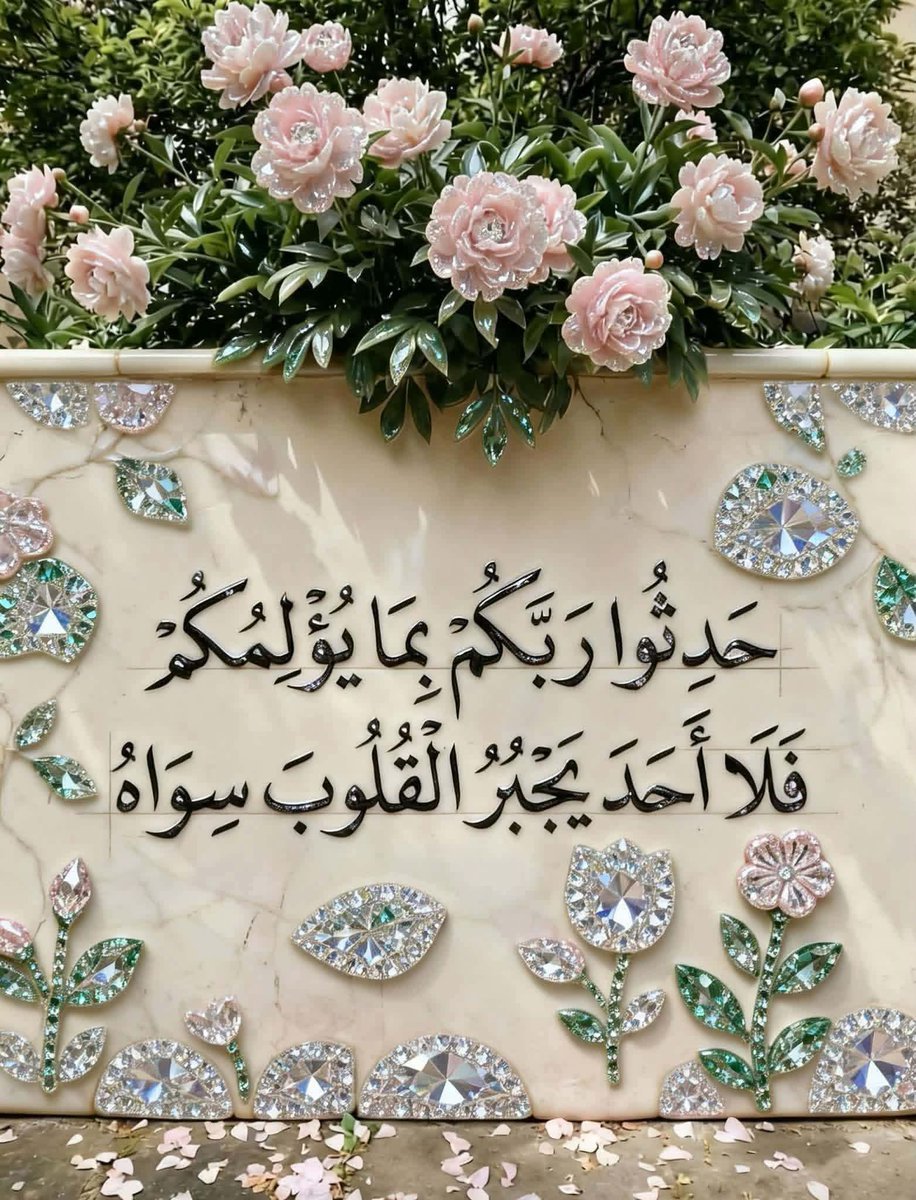 حَدِثُوا رَبَّكُمْ بِمَا يُؤْلِمُكُمْ
فَلَا أَحَدَ يَجْبُرُ الْقُلُوبَ سِوَاهُ